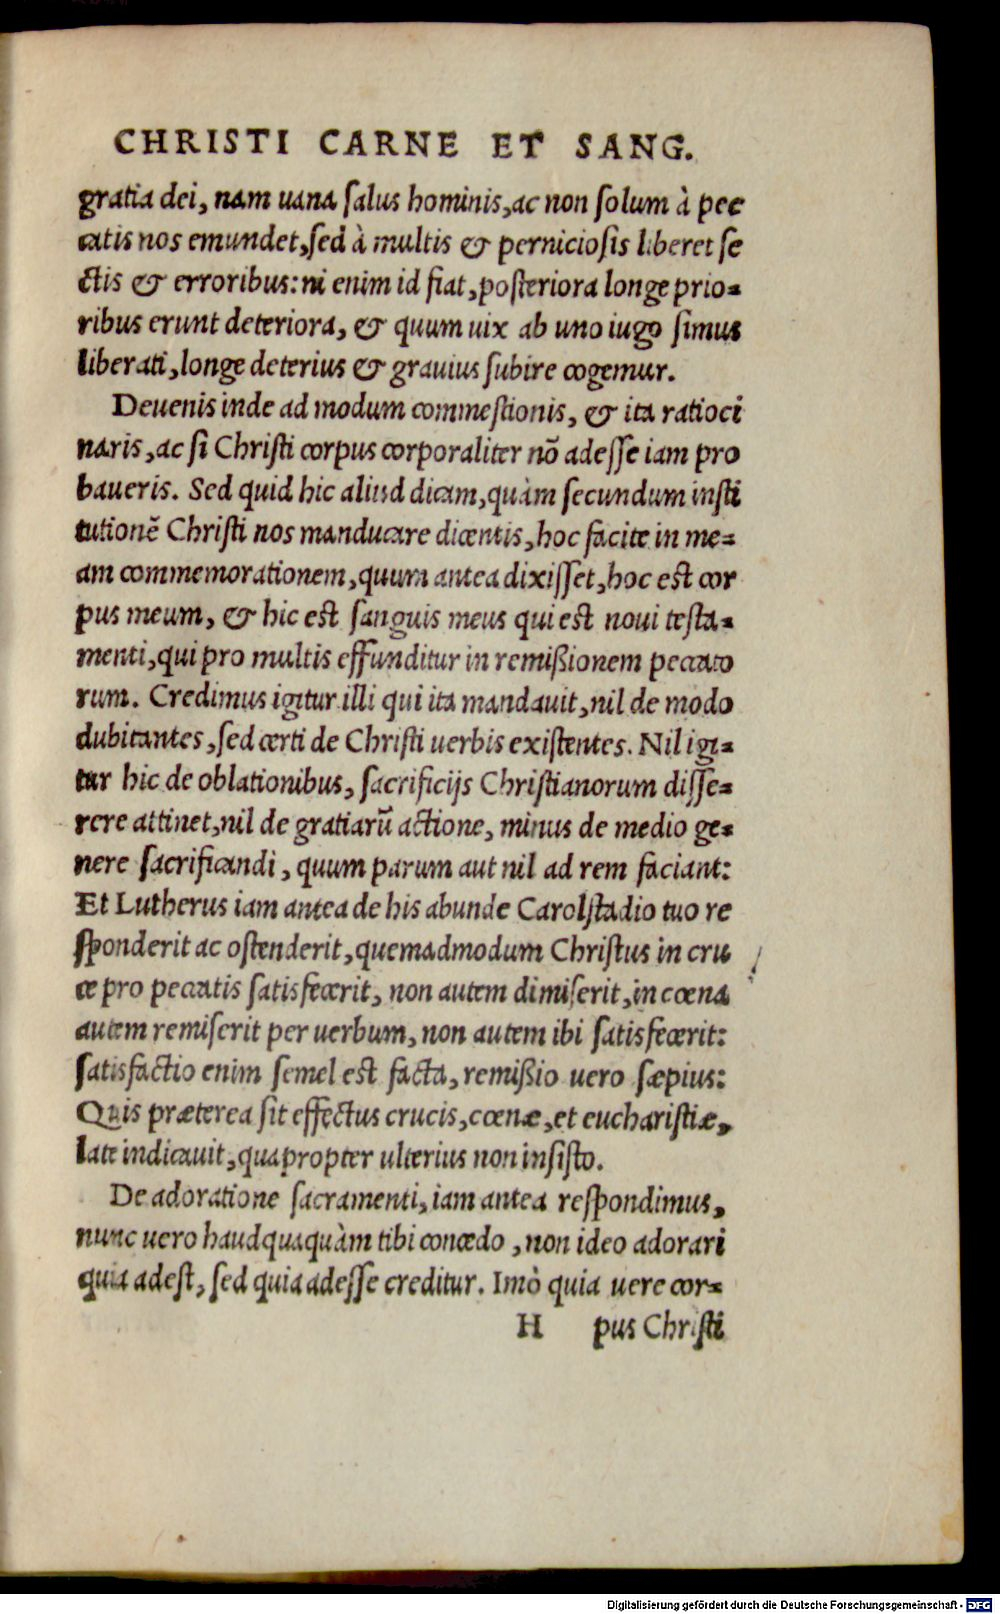 CHRISTI CARNE ET SANG.
gratia dei, nam uana ſalus hominis, ac non ſolum à pec
catis nos emundet, ſed à multis & pernicioſis liberet ſe
ctis & erroribus: ni enim id fiat, poſteriora longe prio-
ribus erunt deteriora, & quum uix ab uno iugo ſimus
liberati, longe deterius & grauius ſubire cogemur.
Deuenis inde ad modum commeſtionis, & ita ratioci
naris, ac ſi Chriſti corpus corporaliter nõ adeſſe iam pro
baueris. Sed quid hic aliud dicam, quàm ſecundum inſti
tutionẽ Chriſti nos manducare dicentis, hoc facite in me-
am commemorationem, quum antea dixiſſet, hoc eſt cor
pus meum, & hic eſt ſanguis meus qui eſt noui teſta-
menti, qui pro multis effunditur in remißionem peccato
rum. Credimus igitur illi qui ita mandauit, nil de modo
dubitantes, ſed certi de Chriſti uerbis exiſtentes. Nil igi-
tur hic de oblationibus, ſacrificijs Chriſtianorum diſſe-
rere attinet, nil de gratiarũ actione, minus de medio ge-
nere ſacrificandi, quum parum aut nil ad rem faciant:
Et Lutherus iam antea de his abunde Carolſtadio tuo re
ſponderit ac oſtenderit, quemadmodum Chriſtus in cru
ce pro peccatis ſatisfecerit, non autem dimiſerit, in cœna
autem remiſerit per uerbum, non autem ibi ſatisfecerit:
ſatisfactio enim ſemel eſt facta, remißio uero ſæpius:
Quis præterea ſit effectus crucis, cœnæ, et euchariſtiæ,
late indicauit, quapropter ulterius non inſiſto.
De adoratione ſacramenti, iam antea reſpondimus,
nunc uero haudquaquàm tibi concedo, non ideo adorari
quia adeſt, ſed quia adeſſe creditur. Imò quia uere cor-
H pus Chriſti
Digitalisierung gefördert durch die Deutsche Forschungsgemeinschaft - DFG